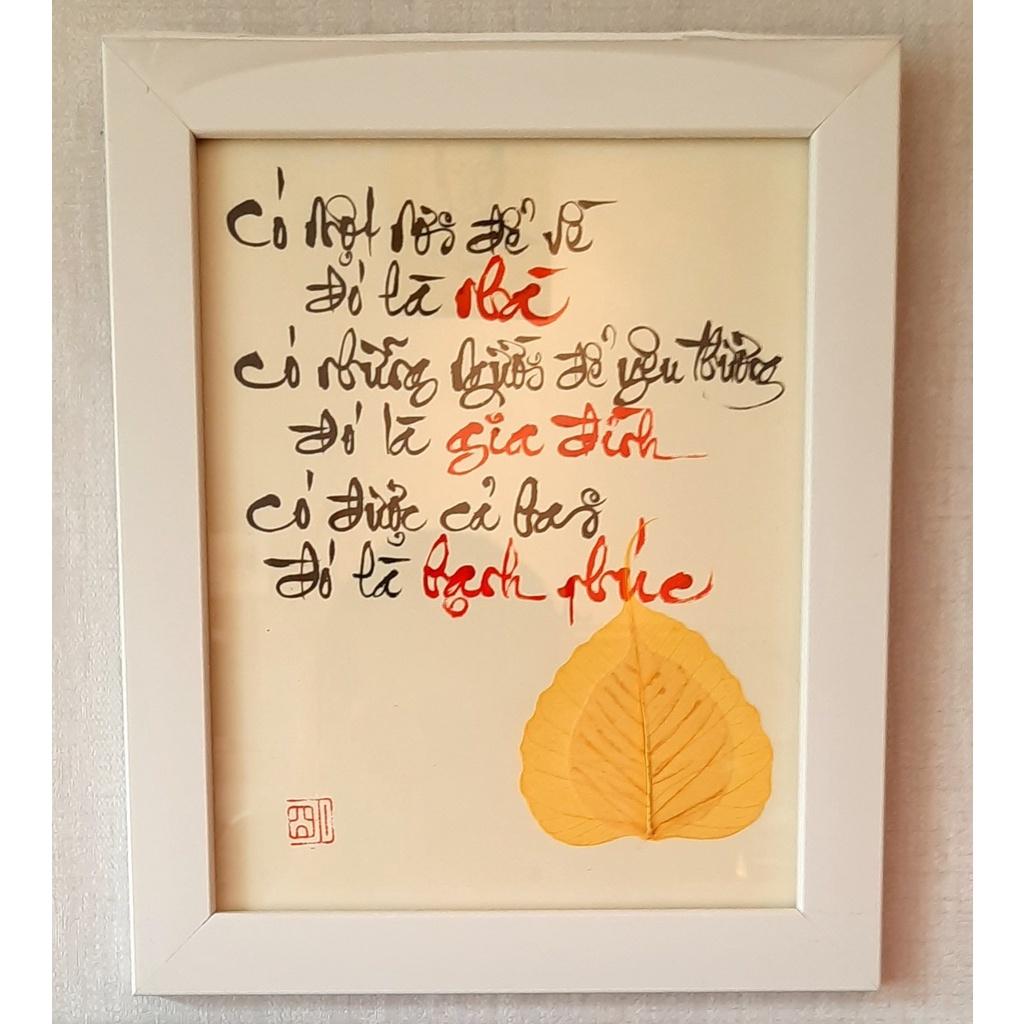 Có một nơi để về
đó là nhà
Có những người để yêu thương
đó là gia đình
Có được cả hai
đó là hạnh phúc